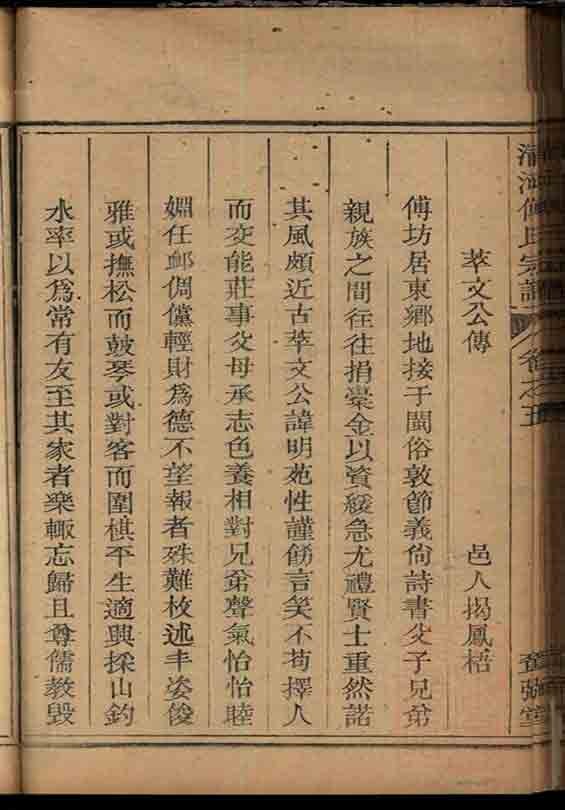 清河傅氏宗譜 卷之五
萃文公傳 邑人揭鳳梧
傅坊居東鄉地接于閩俗敦節義尙詩書父子兄弟
親族之間往往捐橐金以資緩急尤禮賢士重然諾
其風頗近古萃文公諱明苑性謹飭言笑不苟擇人
而交能莊事父母承志色養相對兄弟聲氣怡怡睦
婣任䘏倜儻輕財爲德不望報者殊難枚述丰姿俊
雅或撫松而鼓琴或對客而圍棋平生適興採山釣
水率以爲常有友至其家者樂輙忘歸且尊儒教毀